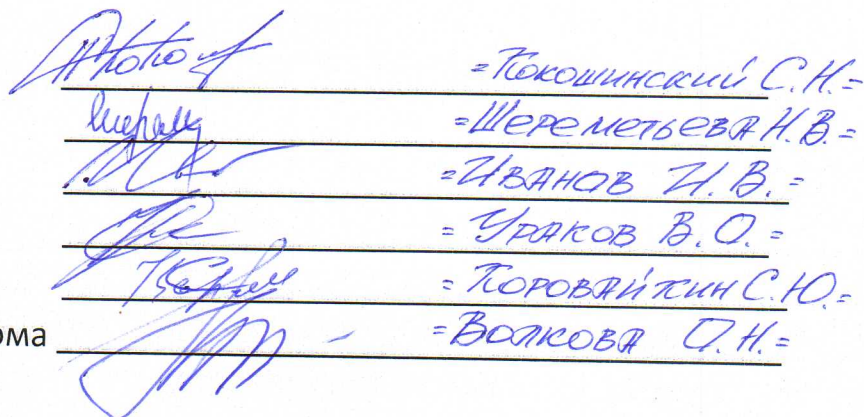 =Кокошинский С.Н.=
=Шереметьева Н.В.=
=Иванов И.В.=
=Ураков В.О.=
=Коровайкин С.Ю.=
ома =Волкова О.Н.=